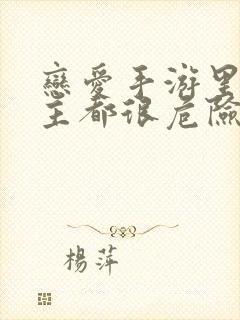 戀愛手游里
主都很危險
楊萍